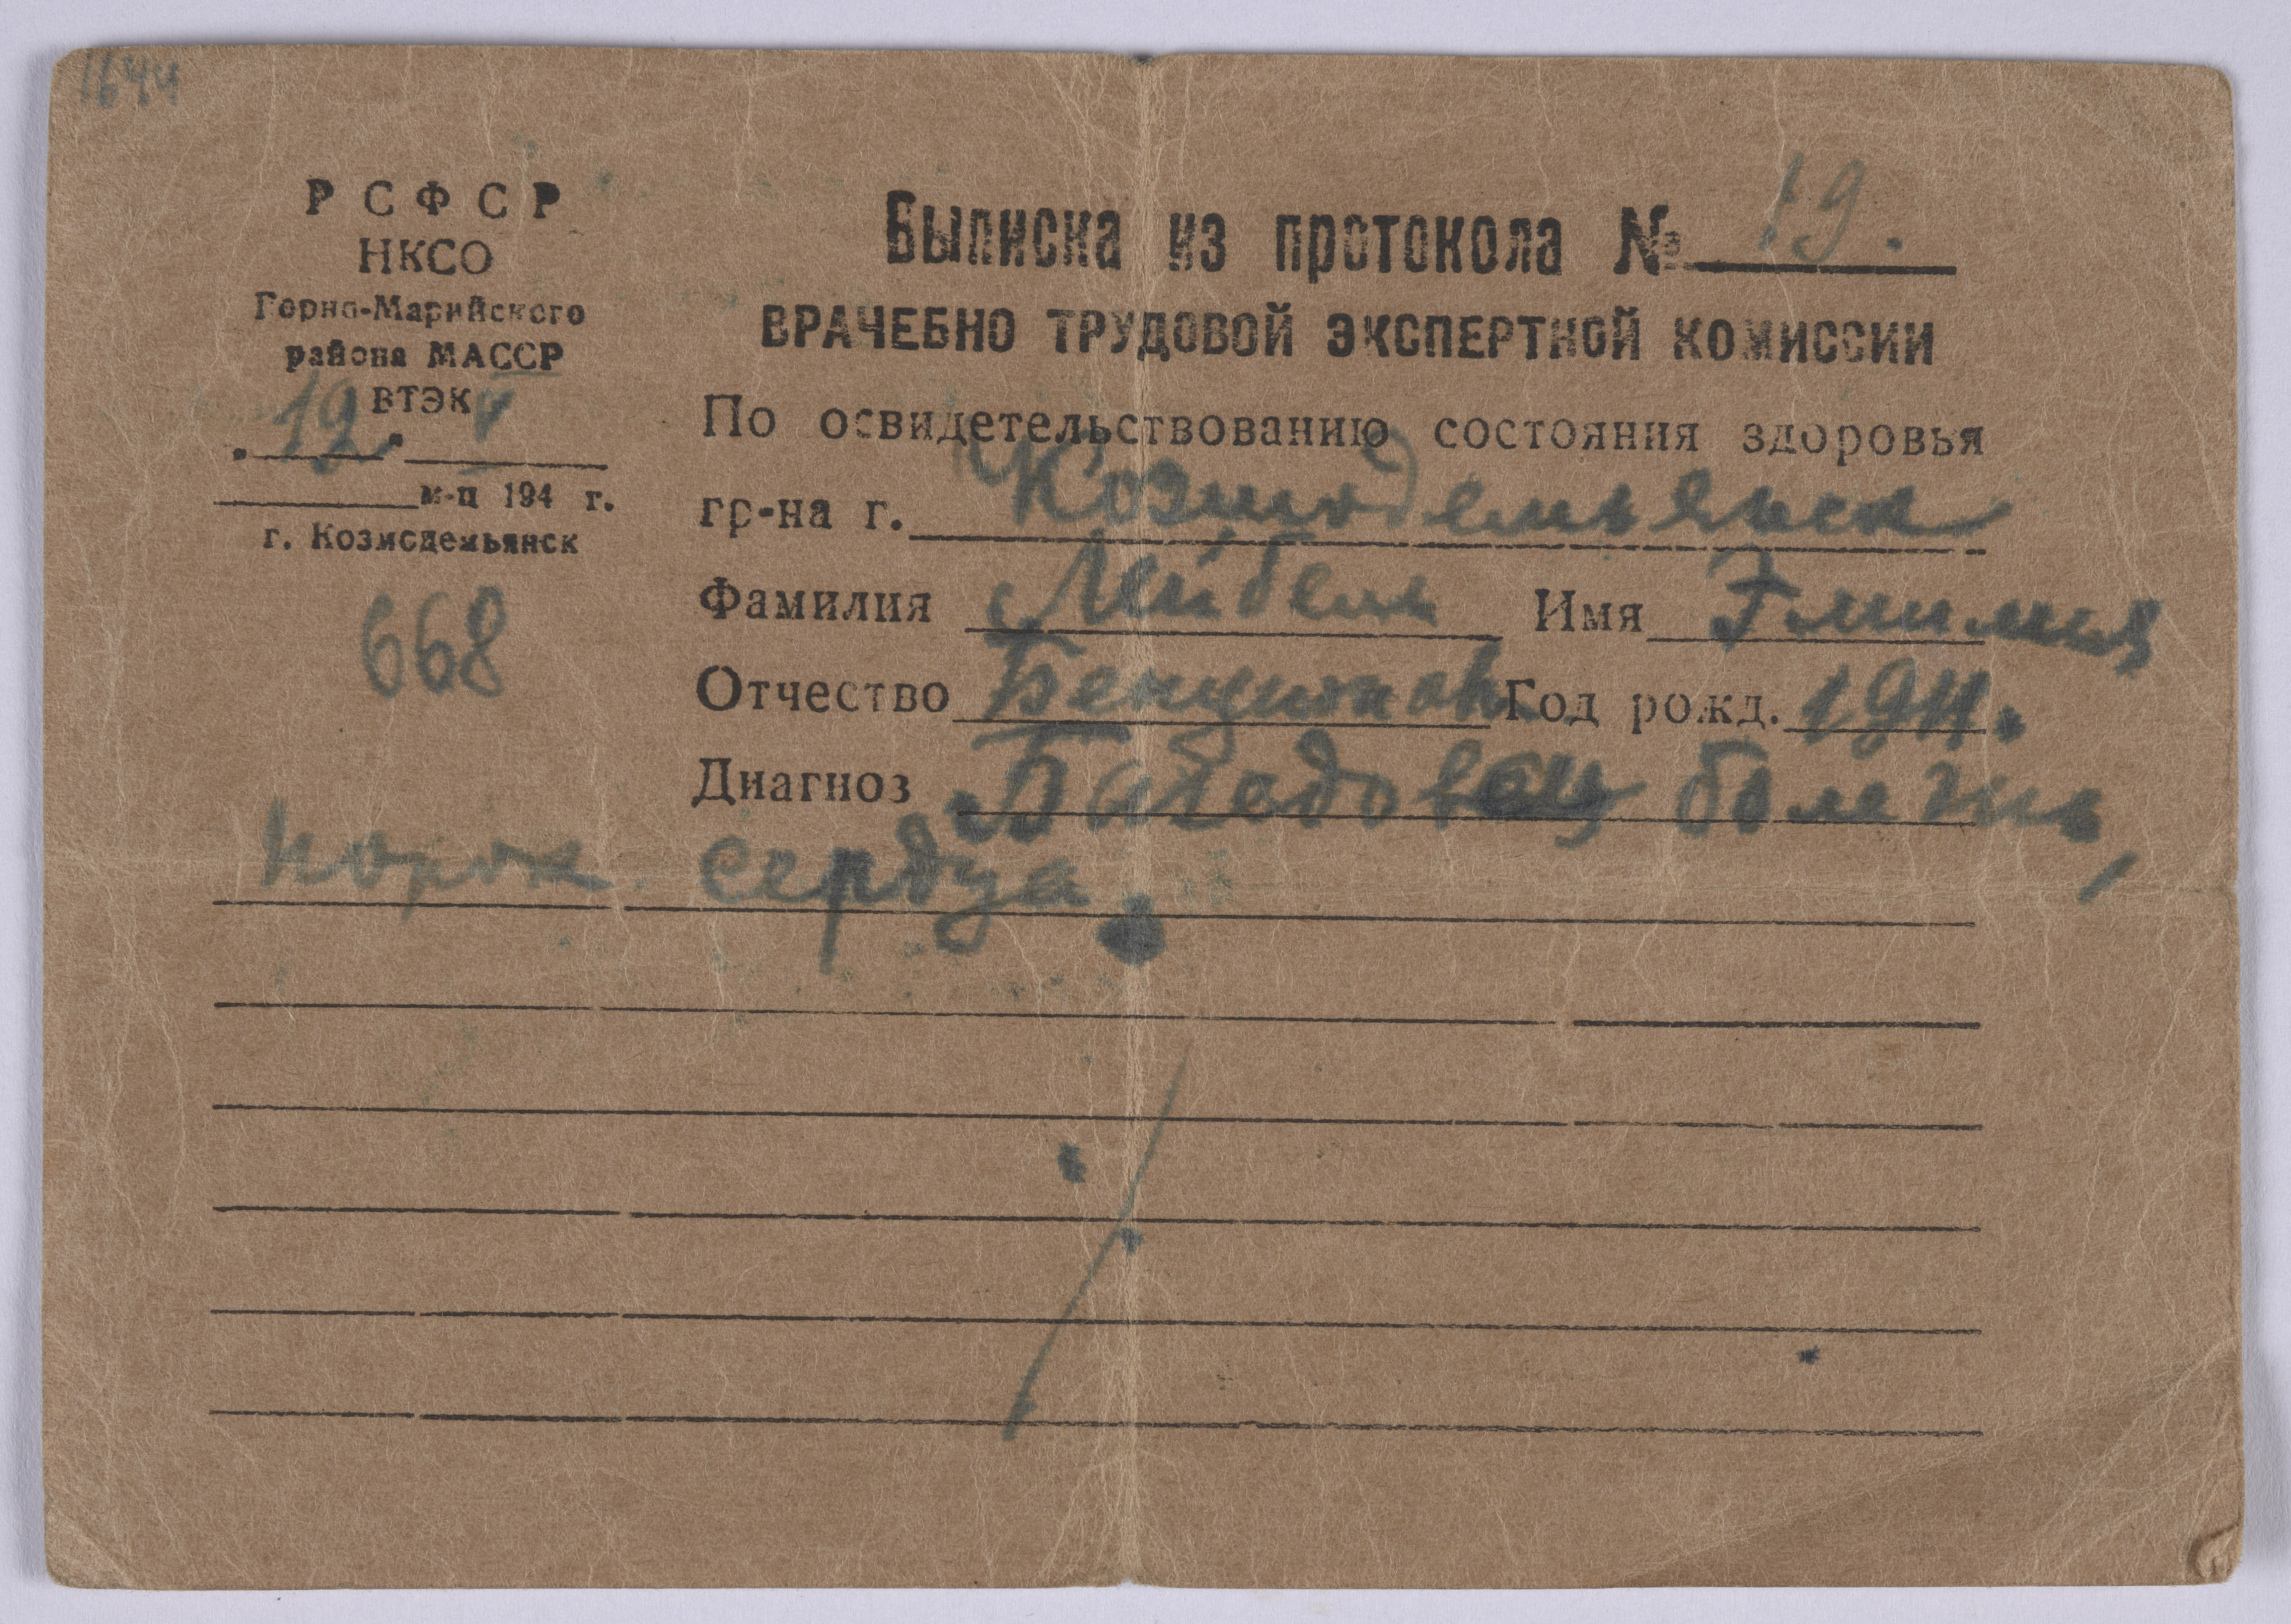 1644
Р С Ф С Р
НКСО
Горно-Марийского
района МАССР
ВТЭК
„12“ V
м-ц 194 г.
г. Козмодемьянск
668
Выписка из протокола № 19.
ВРАЧЕБНО ТРУДОВОЙ ЭКСПЕРТНОЙ КОМИССИИ
По освидетельствованию состояния здоровья
гр-на г. Козмодемьянск
Фамилия Лейбель Имя Эмилия
Отчество Год рожд. 1911.
Диагноз Базедовец болезнь,
порок сердца.